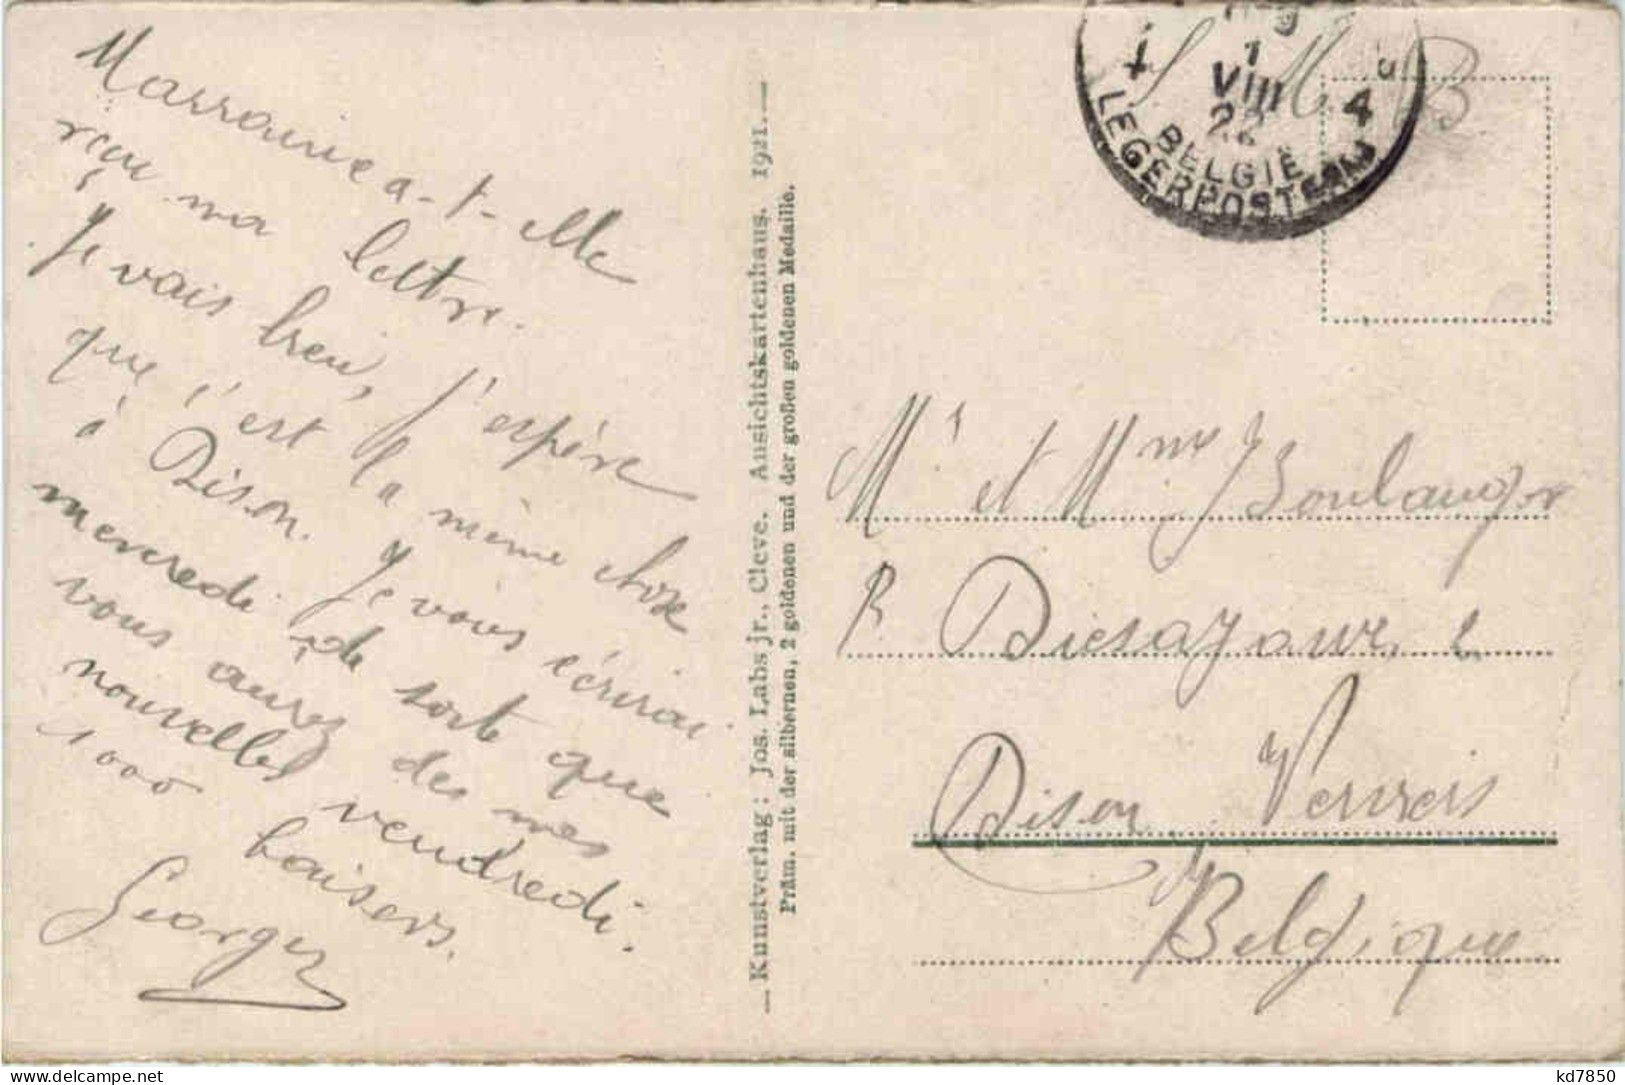 Marraine a-t-elle
reçu ma lettre.
Je vais bien, j'espère
que c'est la même chose
à Dison. Je vous écrirai
mercredi de sorte que
vous aurez des mes
nouvelles vendredi.
1000 baisers.
Georges
Kunstverlag: Jos. Labs jr., Cleve. Ansichtskartenhaus. 1921.
Präm. mit der silbernen, 2 goldenen und der großen goldenen Medaille.
S. M. B.
1
VIII
22
4
BELGIE
LEGERPOSTERIJ
Mr et Mme Boulanger
R.
Dison Verviers
Belgique
kd7850